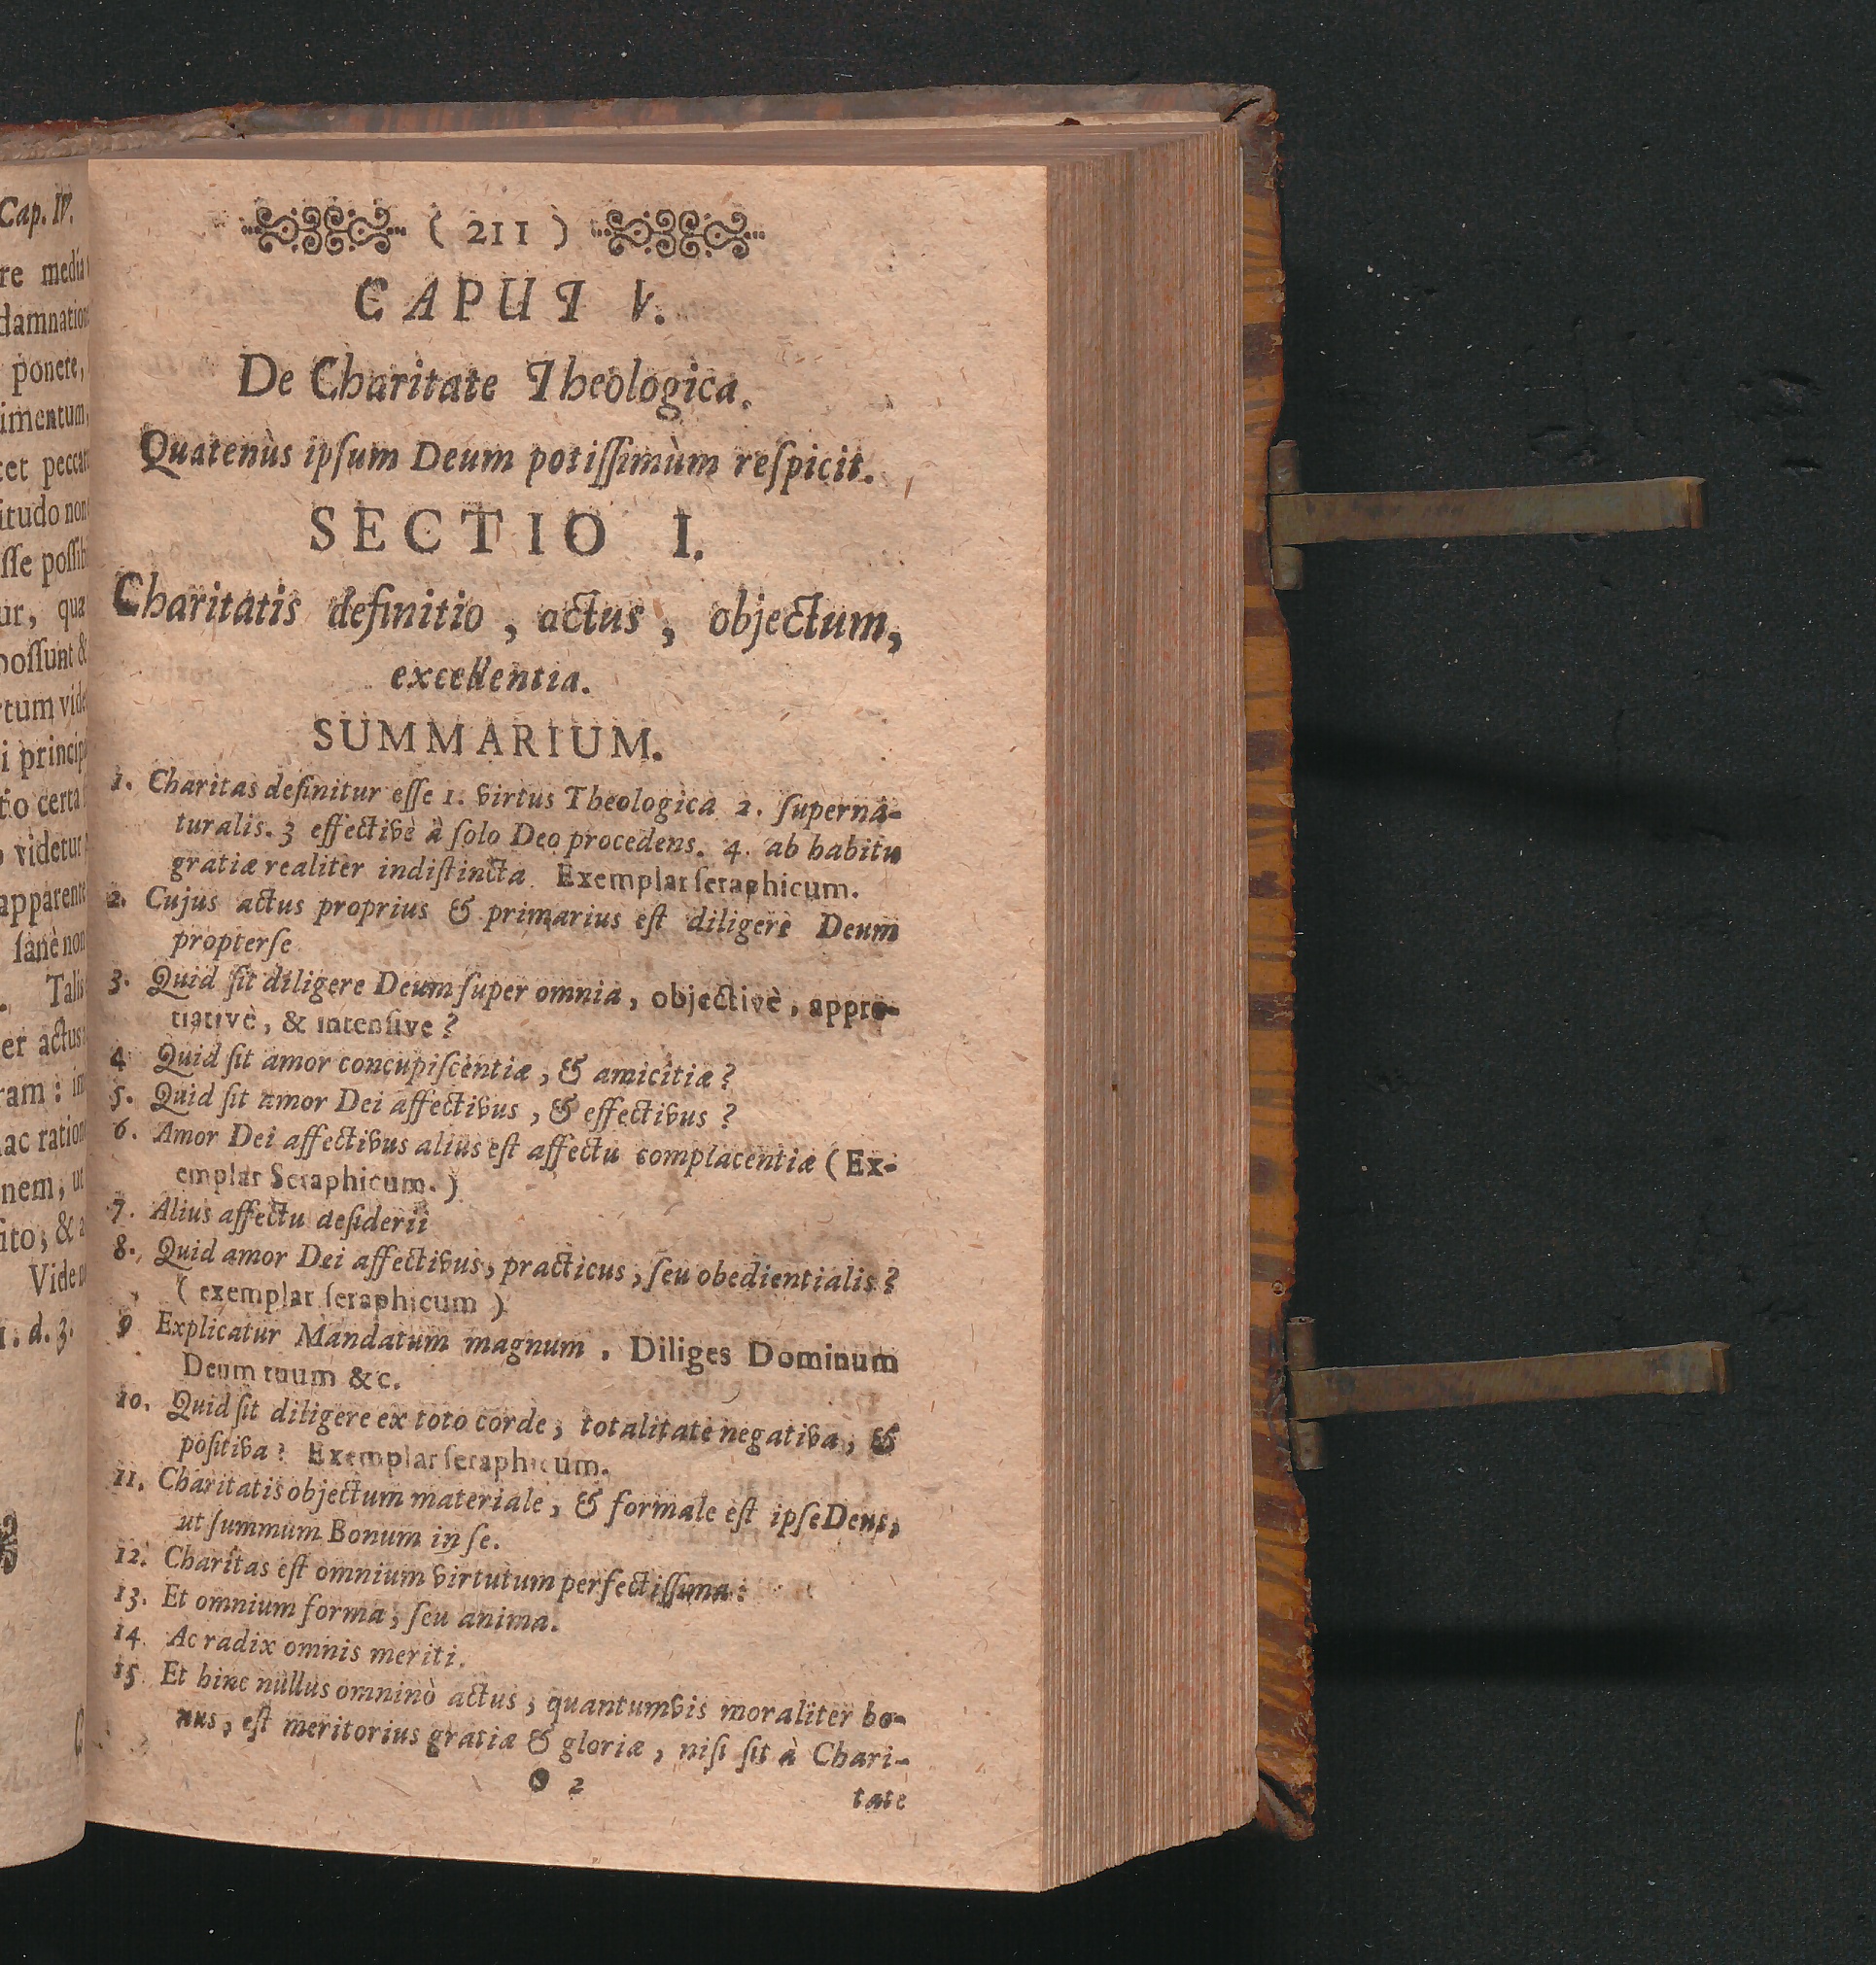 Cap. IV.
re media
damnation
ponere,
imentum,
cet peccar
itudo non
sse possib
ur, qua
possunt &
rtum vide
i princip
tio certa
videtur
apparente
sanè non
Talis
er actus
ram: im
ac ration
nem, ut
ito; & a
Vide
1. d. 3.
( 211 )
CAPUT V.
De Charitate Theologica.
Quatenùs ipsum Deum potissimùm respicit.
SECTIO I.
Charitatis definitio, actus, objectum,
excellentia.
SUMMARIUM.
1. Charitas definitur esse 1. virtus Theologica 2. superna-
turalis. 3 effectivè à solo Deo procedens. 4. ab habitu
gratiæ realiter indistincta. Exemplar seraphicum.
2. Cujus actus proprius & primarius est diligere Deum
propter se
3. Quid sit diligere Deum super omnia, objectivè, appre-
tiativè, & intensive?
4 Quid sit amor concupiscentiæ, & amicitiæ?
5. Quid sit amor Dei affectivus, & effectivus?
6. Amor Dei affectivus alius est affectu complacentiæ (Ex-
emplar Seraphicum.)
7. Alius affectu desiderii
8. Quid amor Dei affectivus, practicus, seu obedientialis?
( exemplar seraphicum )
9 Explicatur Mandatum magnum. Diliges Dominum
Deum tuum &c.
10. Quid sit diligere ex toto corde, totalitate negativa, &
positiva? Exemplar seraphicum.
11. Charitatis objectum materiale, & formale est ipse Deus,
ut summum Bonum in se.
12. Charitas est omnium virtutum perfectissima:
13. Et omnium forma, seu anima.
14. Ac radix omnis meriti.
15 Et hinc nullus omninò actus, quantumvis moraliter bo-
nus, est meritorius gratiæ & gloriæ, nisi sit à Chari-
O 2
tate